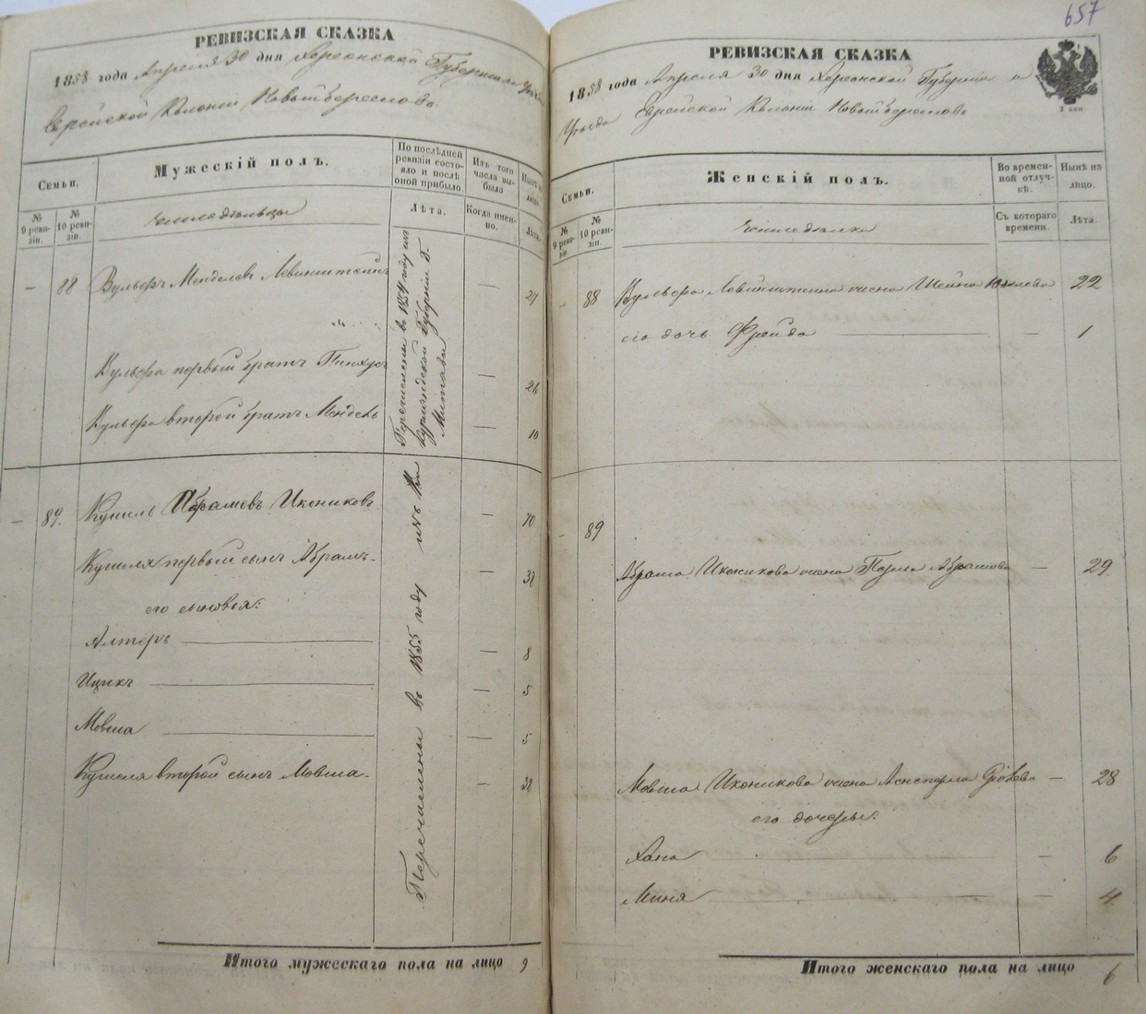 РЕВИЗСКАЯ СКАЗКА
1858 года Апреля 30 дня Херсонской Губернии и Уезда
Еврейской Колонии Новый Береслав
Семьи.
№ 9 ревизіи.
№ 10 ревизіи.
Мужескій полъ.
По послѣдней ревизіи состояло и послѣ оной прибыло.
Лѣта.
Изъ того числа выбыло
Когда именно.
Нынѣ на лицо.
Лѣта.
земледельцы
— 88 Вульфъ Менделевъ Левинштейнъ — 27
Вульфа первый братъ Пинхусъ — 26
Вульфа второй братъ Мендель — 10
Перечислены въ 1854 году изъ Курляндской Губерніи г. Митавы
— 89. Кушель Абрамовъ Икониковъ — 70
Кушеля первый сынъ Абрамъ — 38
его сыновья:
Алтеръ — 8
Ицикъ — 5
Мовша — 5
Кушеля второй сынъ Мовша — 32
Перечислены въ 1855 году изъ
Итого мужескаго пола на лицо 9
657
РЕВИЗСКАЯ СКАЗКА
2 коп
1858 года Апреля 30 дня Херсонской Губерніи и
Уезда Еврейской Колоніи Новый Береслав
Семьи.
№ 9 ревизіи
№ 10 ревизіи.
Женскій полъ.
Во временной отлучкѣ.
Съ котораго времени.
Нынѣ на лицо.
Лѣта.
земледелки
— 88 Вульфа Левинштейна жена Шейна 22
его дочь Фрейда — 1
— 89
Абрама Иконикова жена Перла Абрамова — 29
Мовша Иконикова жена — 28
его дочеры:
Хана — 6
Миня — 4
Итого женскаго пола на лицо 6